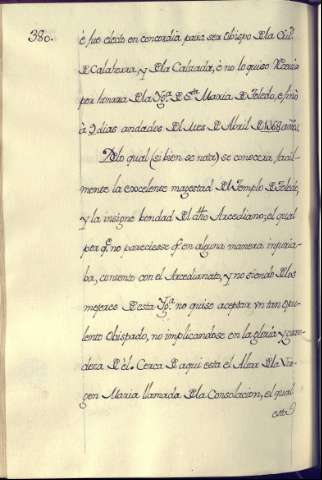 380.
è fue electo en concordia para ser Obispo de la Ciud.
de Calahorra, y de la Calzada, è no lo quiso
por honrra de la Ygª. de Sta. Maria de Toledo, è finò
à 9 dias andados del mes de Abril de
De lo qual (si bien se nota) se conocera facil-
mente la excelente magestad del Templo de Toledo,
y la insigne bondad del dho Arcediano; el qual
por q. no pareciesse q. en alguna manera injuria-
ba, contento con el Arcedianato, y no siendo de los
mejores de esta Ygª. no quiso aceptar vn tan opu-
lento Obispado, no implicandose en la gloria y gran-
deza de èl. Cerca de aqui esta el Altar de la Vir-
gen Maria llamada de la Consolacion, el qual
esta